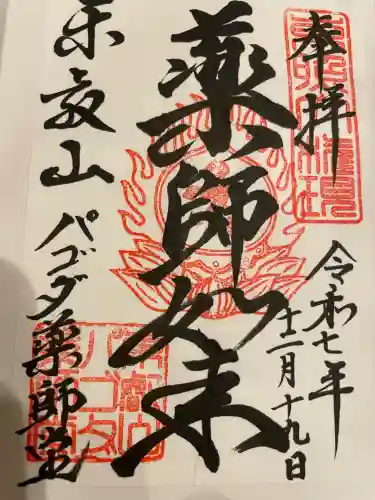 奉拝
令和七年
十二月十九日
薬師如来
東叡山 パゴダ薬師堂